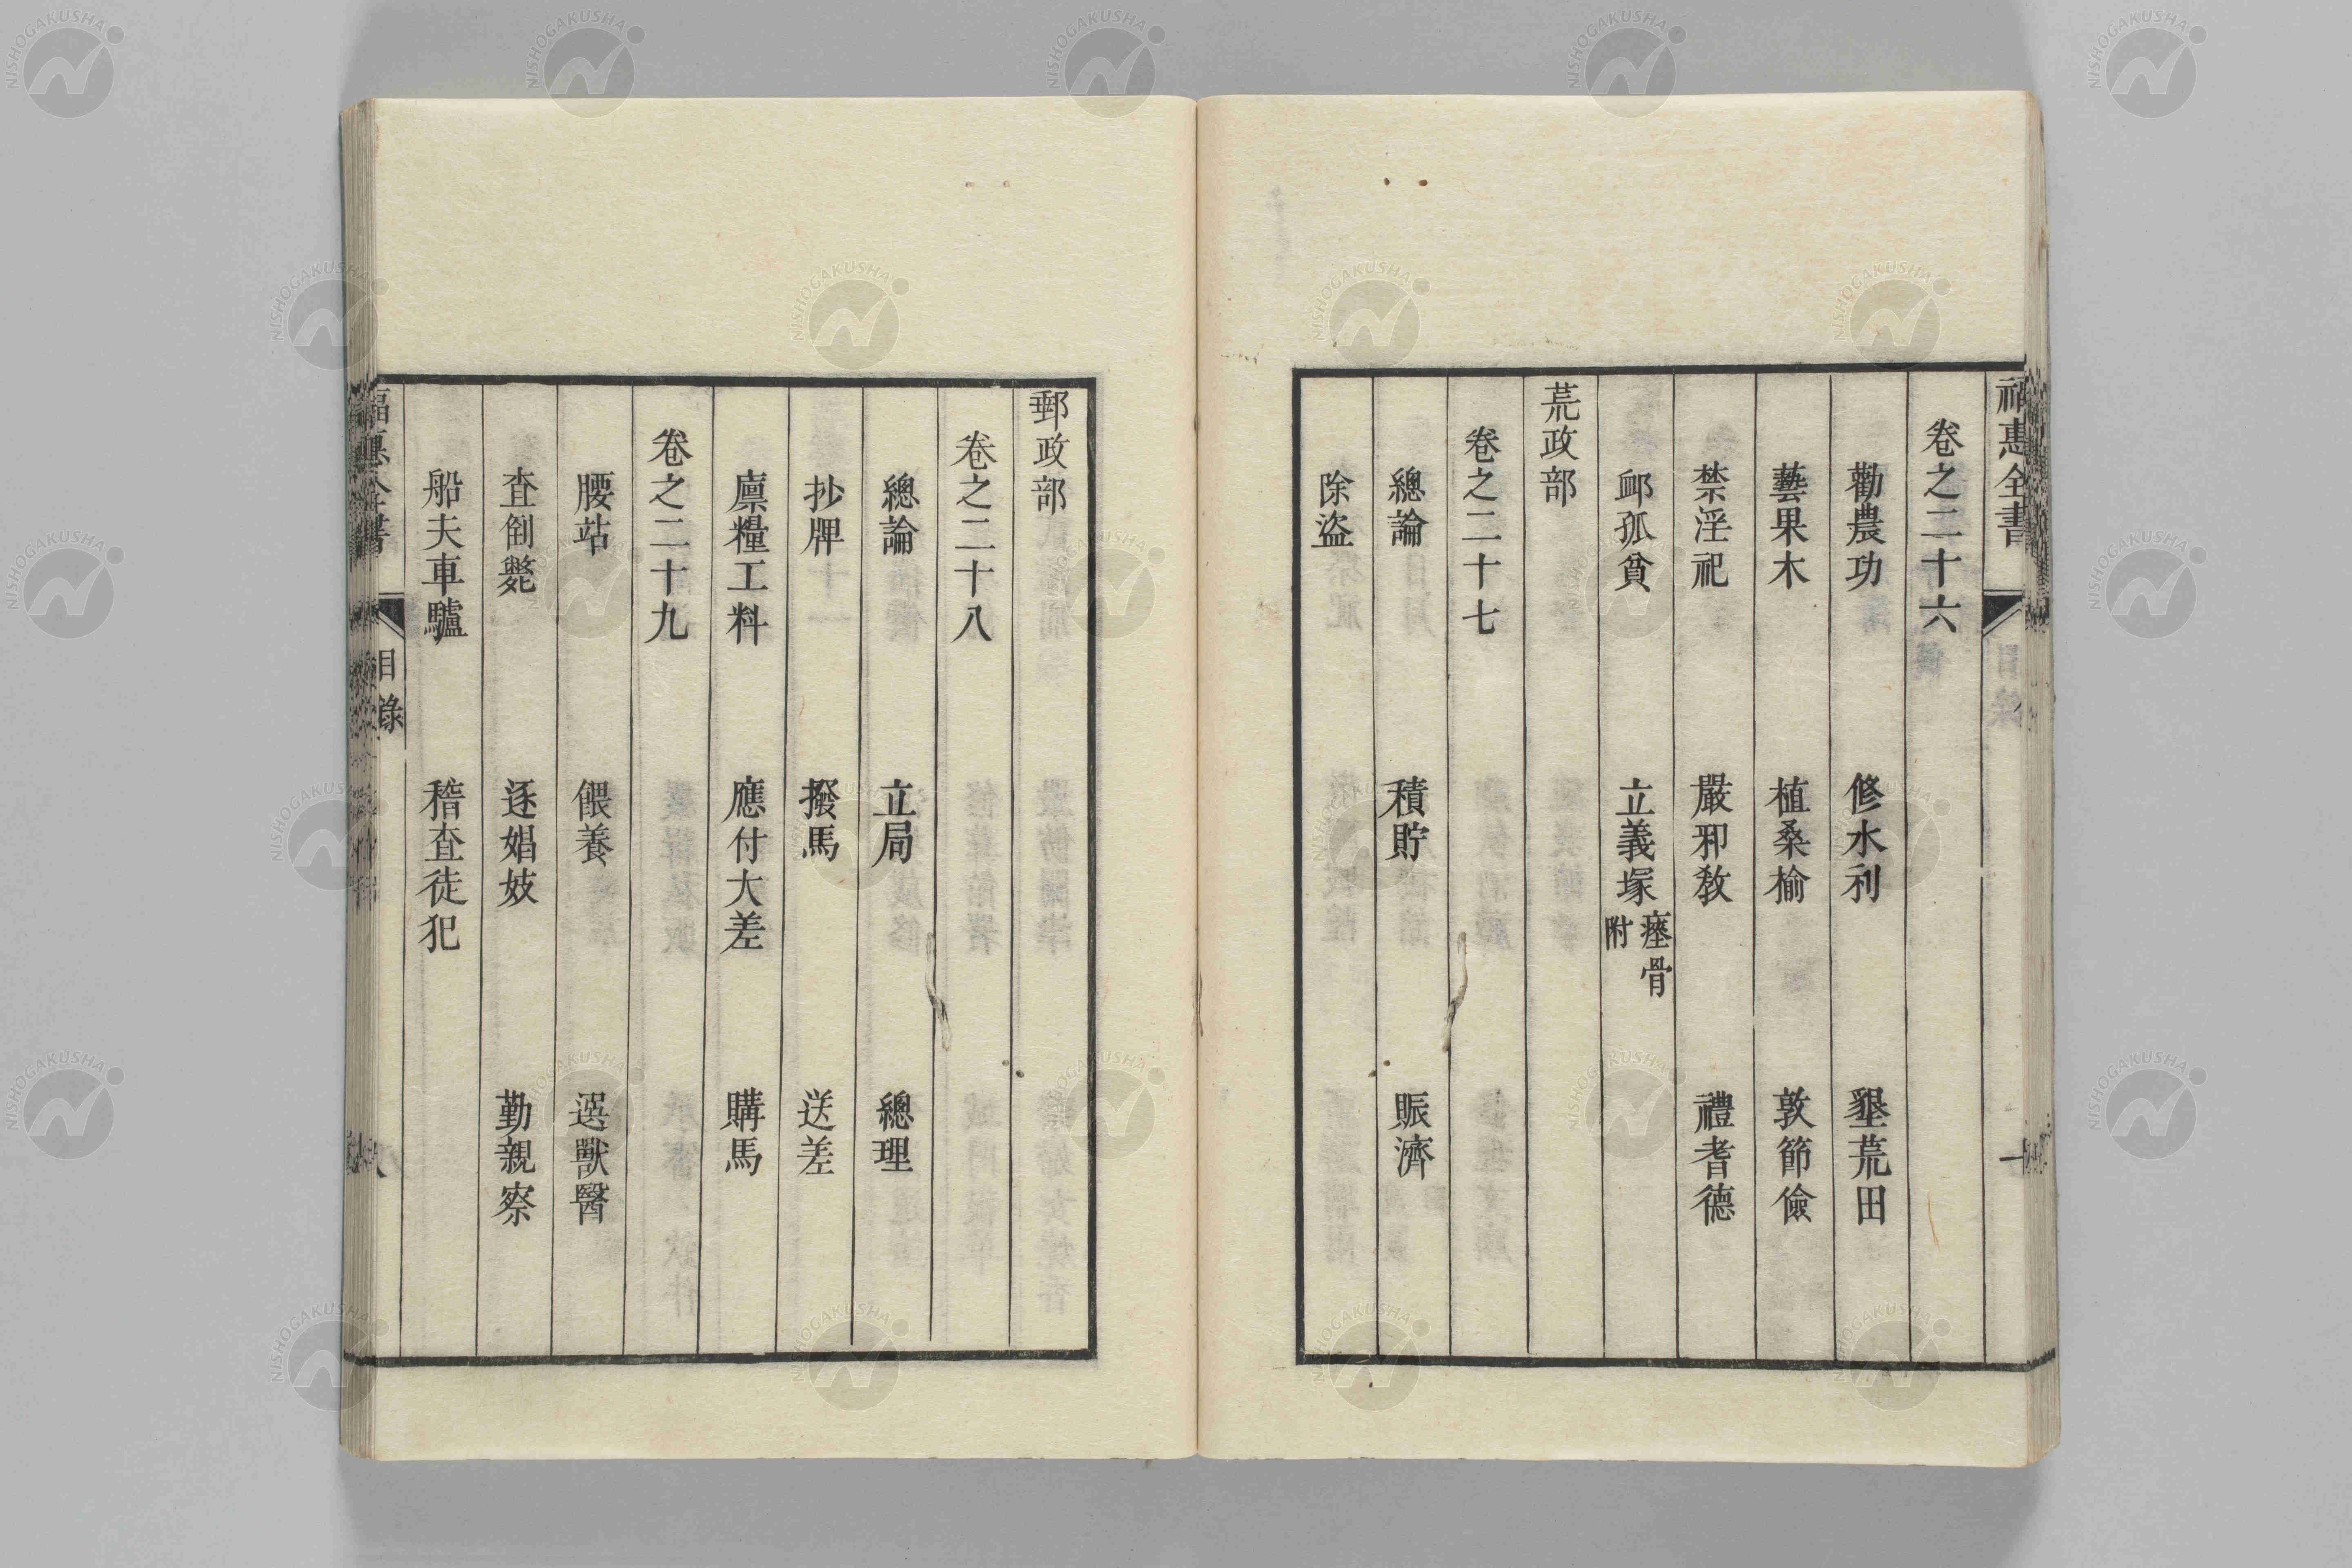 卷之二十六
勸農功 修水利 墾荒田
藝果木 植桑榆 敦節儉
禁淫祀 嚴邪教 禮耆德
卹孤貧 立義塚 瘞骨附
荒政部
卷之二十七
總論 積貯 賑濟
除盜
郵政部
卷之二十八
總論 立局 總理
抄牌 撥馬 送差
廪糧工料 應付大差 購馬
卷之二十九
腰站 餵養 選獸醫
查倒斃 逐娼妓 勤親察
船夫車驢 稽查徒犯
福惠全書 目錄
NISHOGAKUSHA